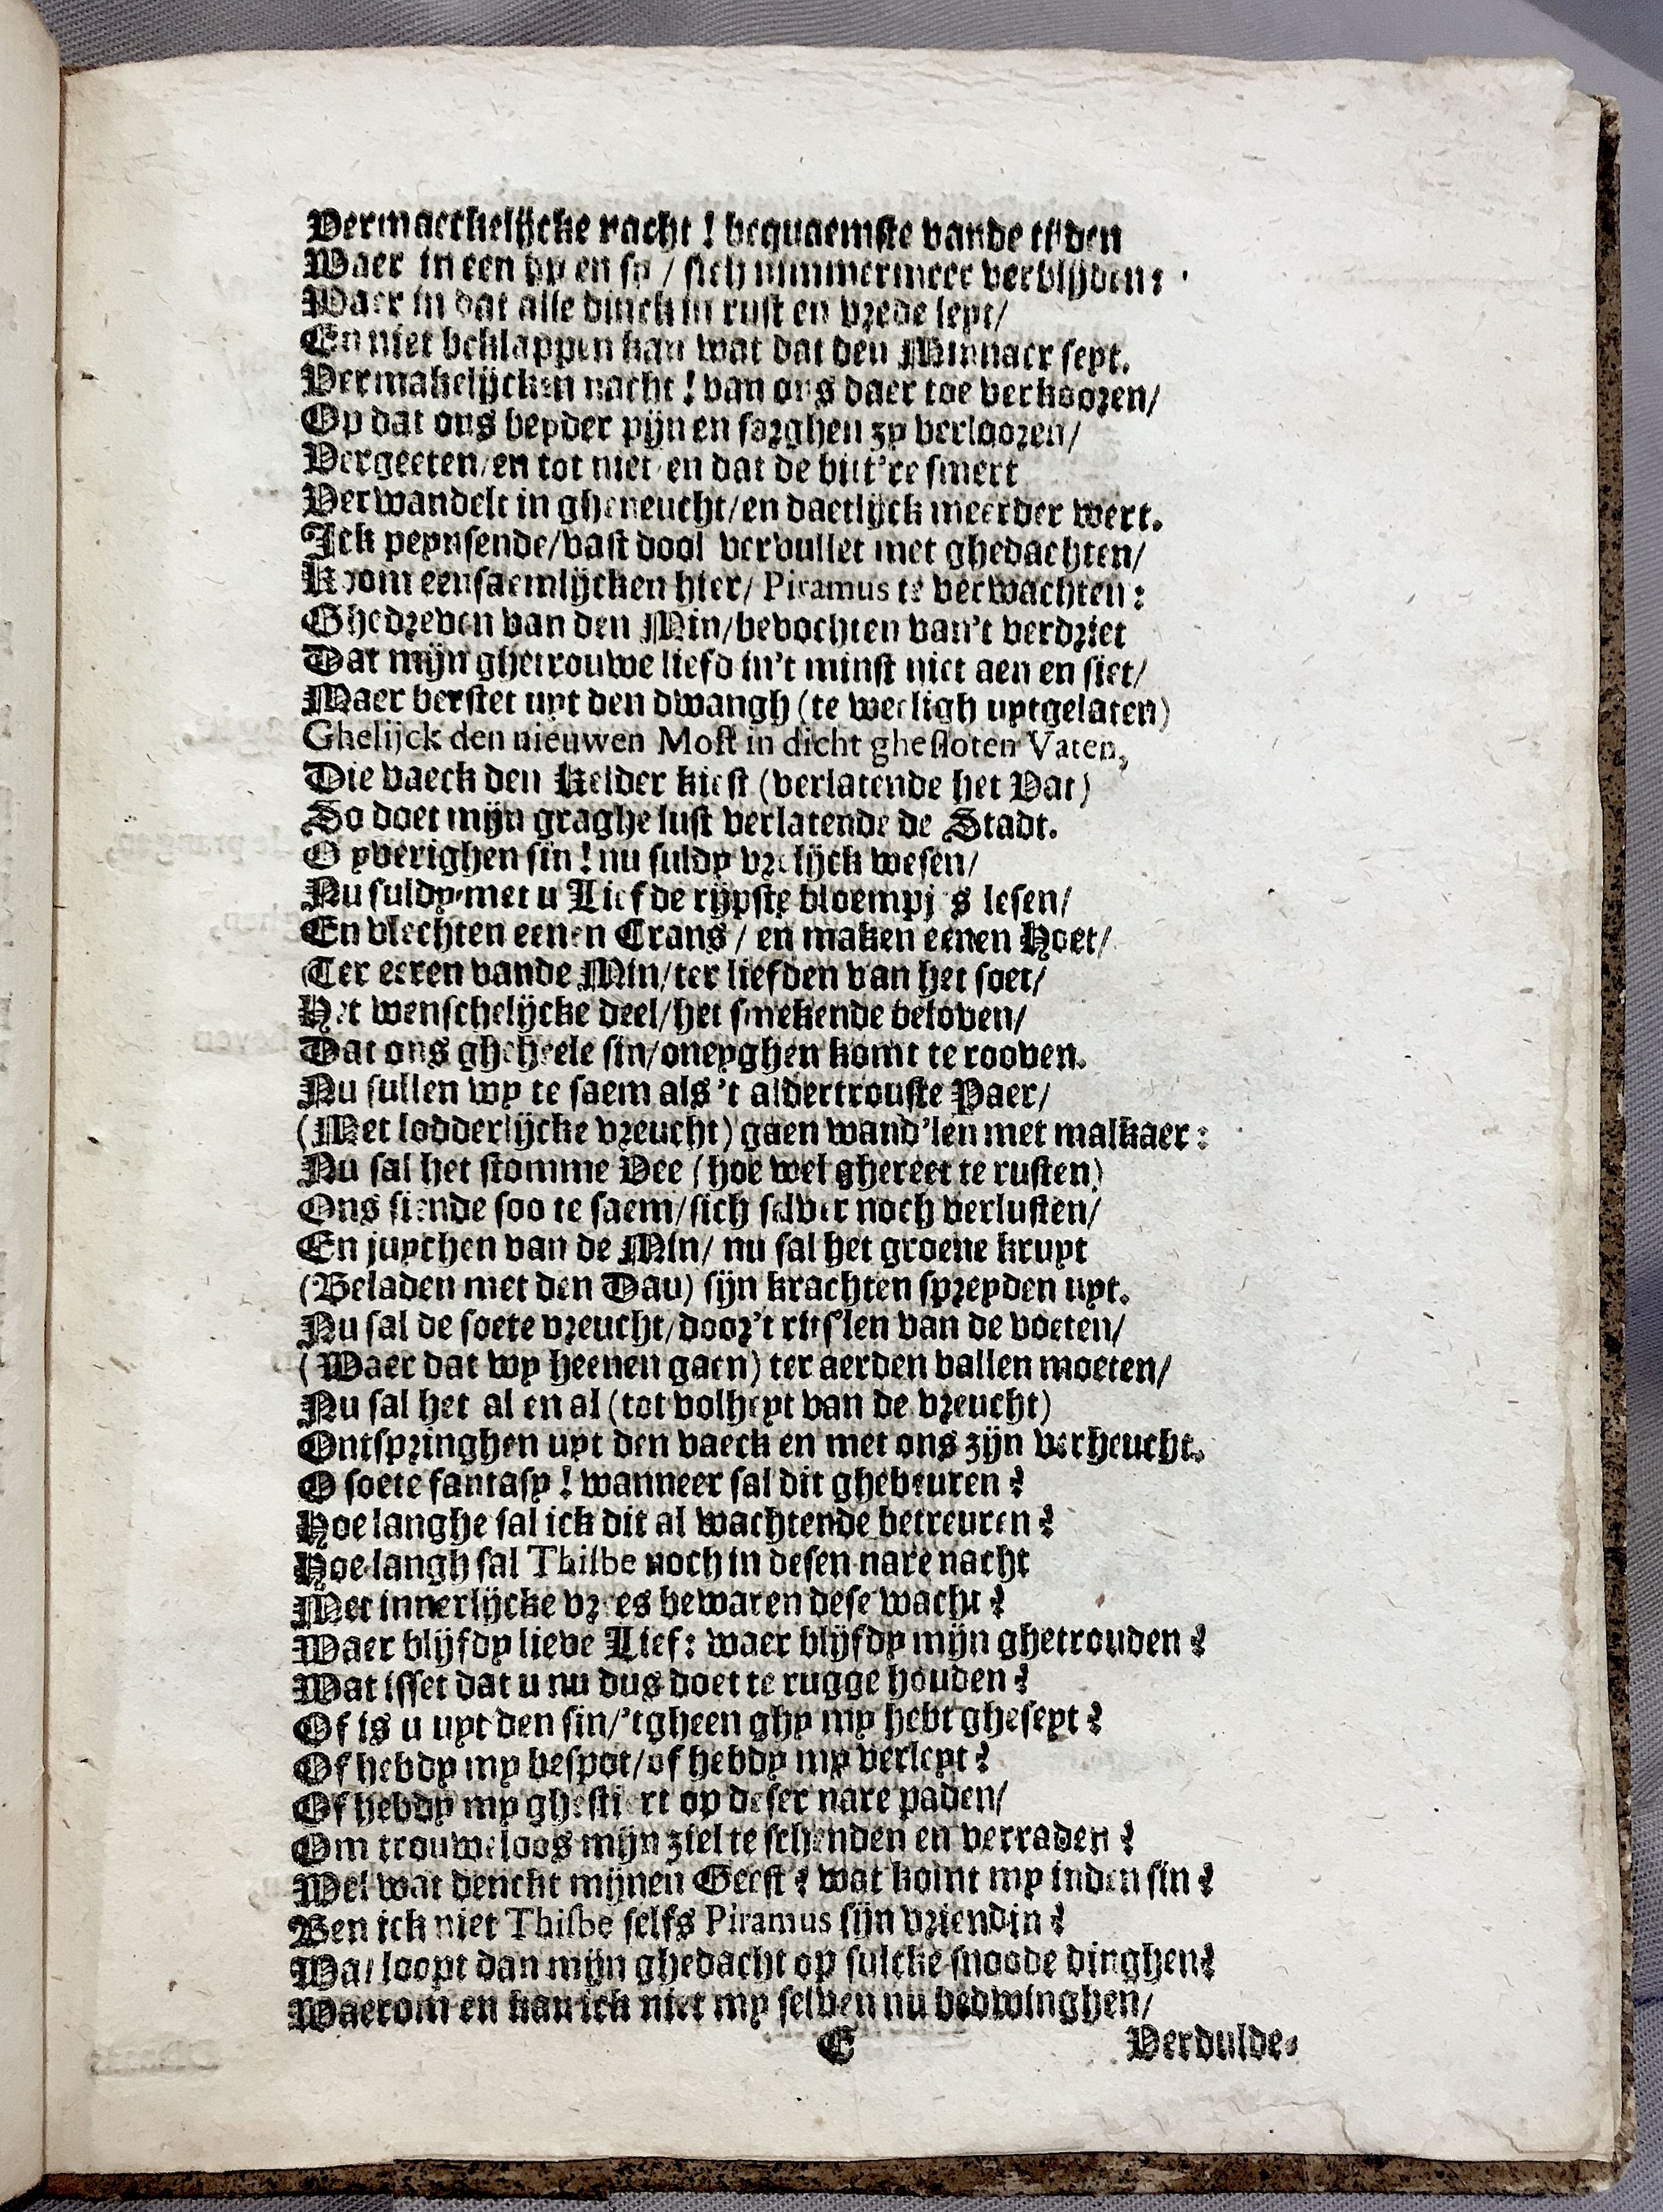 Vermaeckelijcke nacht! bequaemste vande tijden
Waer in een hy en sy / sich nimmermeer verblijden:
Waer in dat alle dinck in rust en vrede leyt/
En niet beklappen kan wat dat den Minnaer seyt.
Vermakelijcken nacht! van ons daer toe verkooren/
Op dat ons beyder pijn en sorghen zy verlooren/
Vergeeten/en tot niet en dat de bitt're smert
Verwandelt in gheneucht/en daetlijck meerder wert.
Ick peynsende/vast dool vervullet met ghedachten/
Koom eensaemlijcken hier/ Piramus te verwachten:
Ghedreven van den Min/bevochten van't verdriet
Dat mijn ghetrouwe liefd in't minst niet aen en siet/
Maer berstet uyt den dwangh (te weeligh uytgelaten)
Ghelijck den nieuwen Most in dicht ghesloten Vaten,
Die vaeck den Kelder kiest (verlatende het Vat)
So doet mijn graghe lust verlatende de Stadt.
O yverighen sin! nu suldy vrolijck wesen/
Nu suldy met u Lief de rijpste bloempjes lesen/
En vlechten eenen Crans / en maken eenen Hoet/
Ter eeren vande Min/ter liefden van het soet/
Het wenschelijcke deel/het smekende beloven/
Dat ons gheheele sin/oneyghen komt te rooven.
Nu sullen wy te saem als 't aldertrouste Paer/
(Met lodderlijcke vreucht) gaen wand'len met malkaer:
Nu sal het stomme Vee (hoe wel ghereet te rusten)
Ons siende soo te saem/sich selver noch verlusten/
En juychen van de Min/ nu sal het groene kruyt
(Beladen met den Dau) sijn krachten spreyden uyt.
Nu sal de soete vreucht/door't rits'len van de voeten/
(Waer dat wy heenen gaen) ter aerden vallen moeten/
Nu sal het al en al (tot volheyt van de vreucht)
Ontspringhen uyt den vaeck en met ons zijn verheucht.
O soete fantasy! wanneer sal dit ghebeuren?
Hoe langhe sal ick dit al wachtende betreuren?
Hoe langh sal Thisbe noch in desen nare nacht
Met innerlijcke vrees bewaren dese wacht?
Waer blijfdy lieve Lief: waer blijfdy mijn ghetrouden?
Wat isset dat u nu dus doet te rugge houden?
Of is u uyt den sin/'tgheen ghy my hebt gheseyt?
Of hebdy my bespot/of hebdy my verleyt?
Of hebdy my ghestiert op deser nare paden/
Om trouweloos mijn ziel te schenden en verraden?
Wel wat denckt mijnen Geest? wat komt my inden sin?
Ben ick niet Thisbe selfs Piramus sijn vriendin?
Wat loopt dan mijn ghedacht op sulcke snoode dinghen?
Waerom en kan ick niet my selven nu bedwinghen/
E Verdulde-